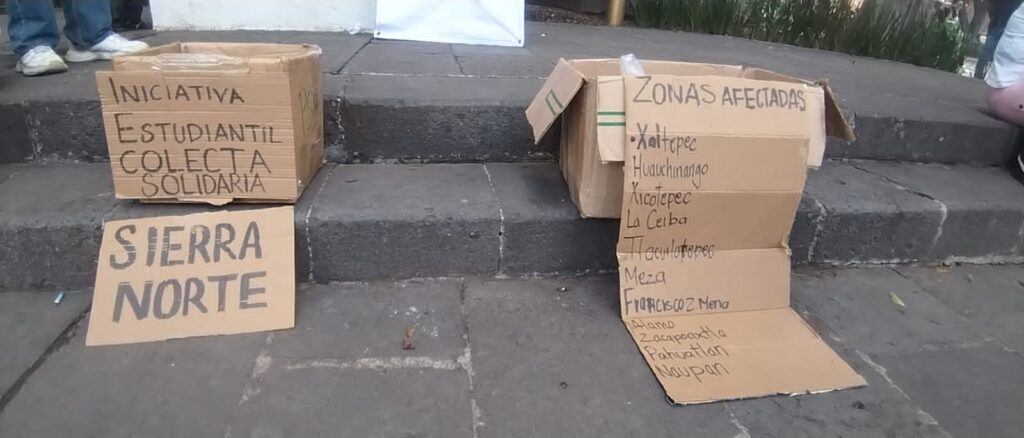 INICIATIVA
ESTUDIANTIL
COLECTA
SOLIDARIA
SIERRA
NORTE
ZONAS AFECTADAS
•Xaltepec
Huauchinango
Xicotepec
La Ceiba
Tlacuilotepec
Meza
FRANCISCO Z Mena
Alamo
Zacapoaxtla
Pahuatlan
Naupan